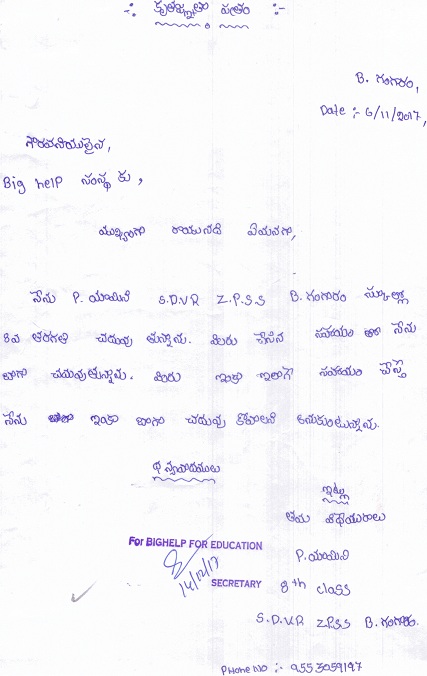 -: కృతజ్ఞతా పత్రం :-
B. గంగారం,
Date :- 6/11/2017,
గౌరవనీయులైన,
Big help సంస్థ కు,
ముఖ్యంగా రాయునది ఏమనగా,
నేను P. యామిని S.D.V.R Z.P.S.S B. గంగారం స్కూల్లో
8వ తరగతి చదువు తున్నాను. మీరు చేసిన సహాయం తో నేను
బాగా చదువుతున్నాను. మీరు ఇంకా ఇలాగే సహాయం చేస్తే
నేను ఇంకా బాగా చదువు కోవాలని అనుకుంటున్నాను.
ధన్యవాదములు
ఇట్లు
తమ విధేయురాలు
For BIGHELP FOR EDUCATION
P. యామిని
14/12/17
SECRETARY
8th class
S.D.V.R Z.P.S.S B. గంగారం.
Phone NO :- 9553059197